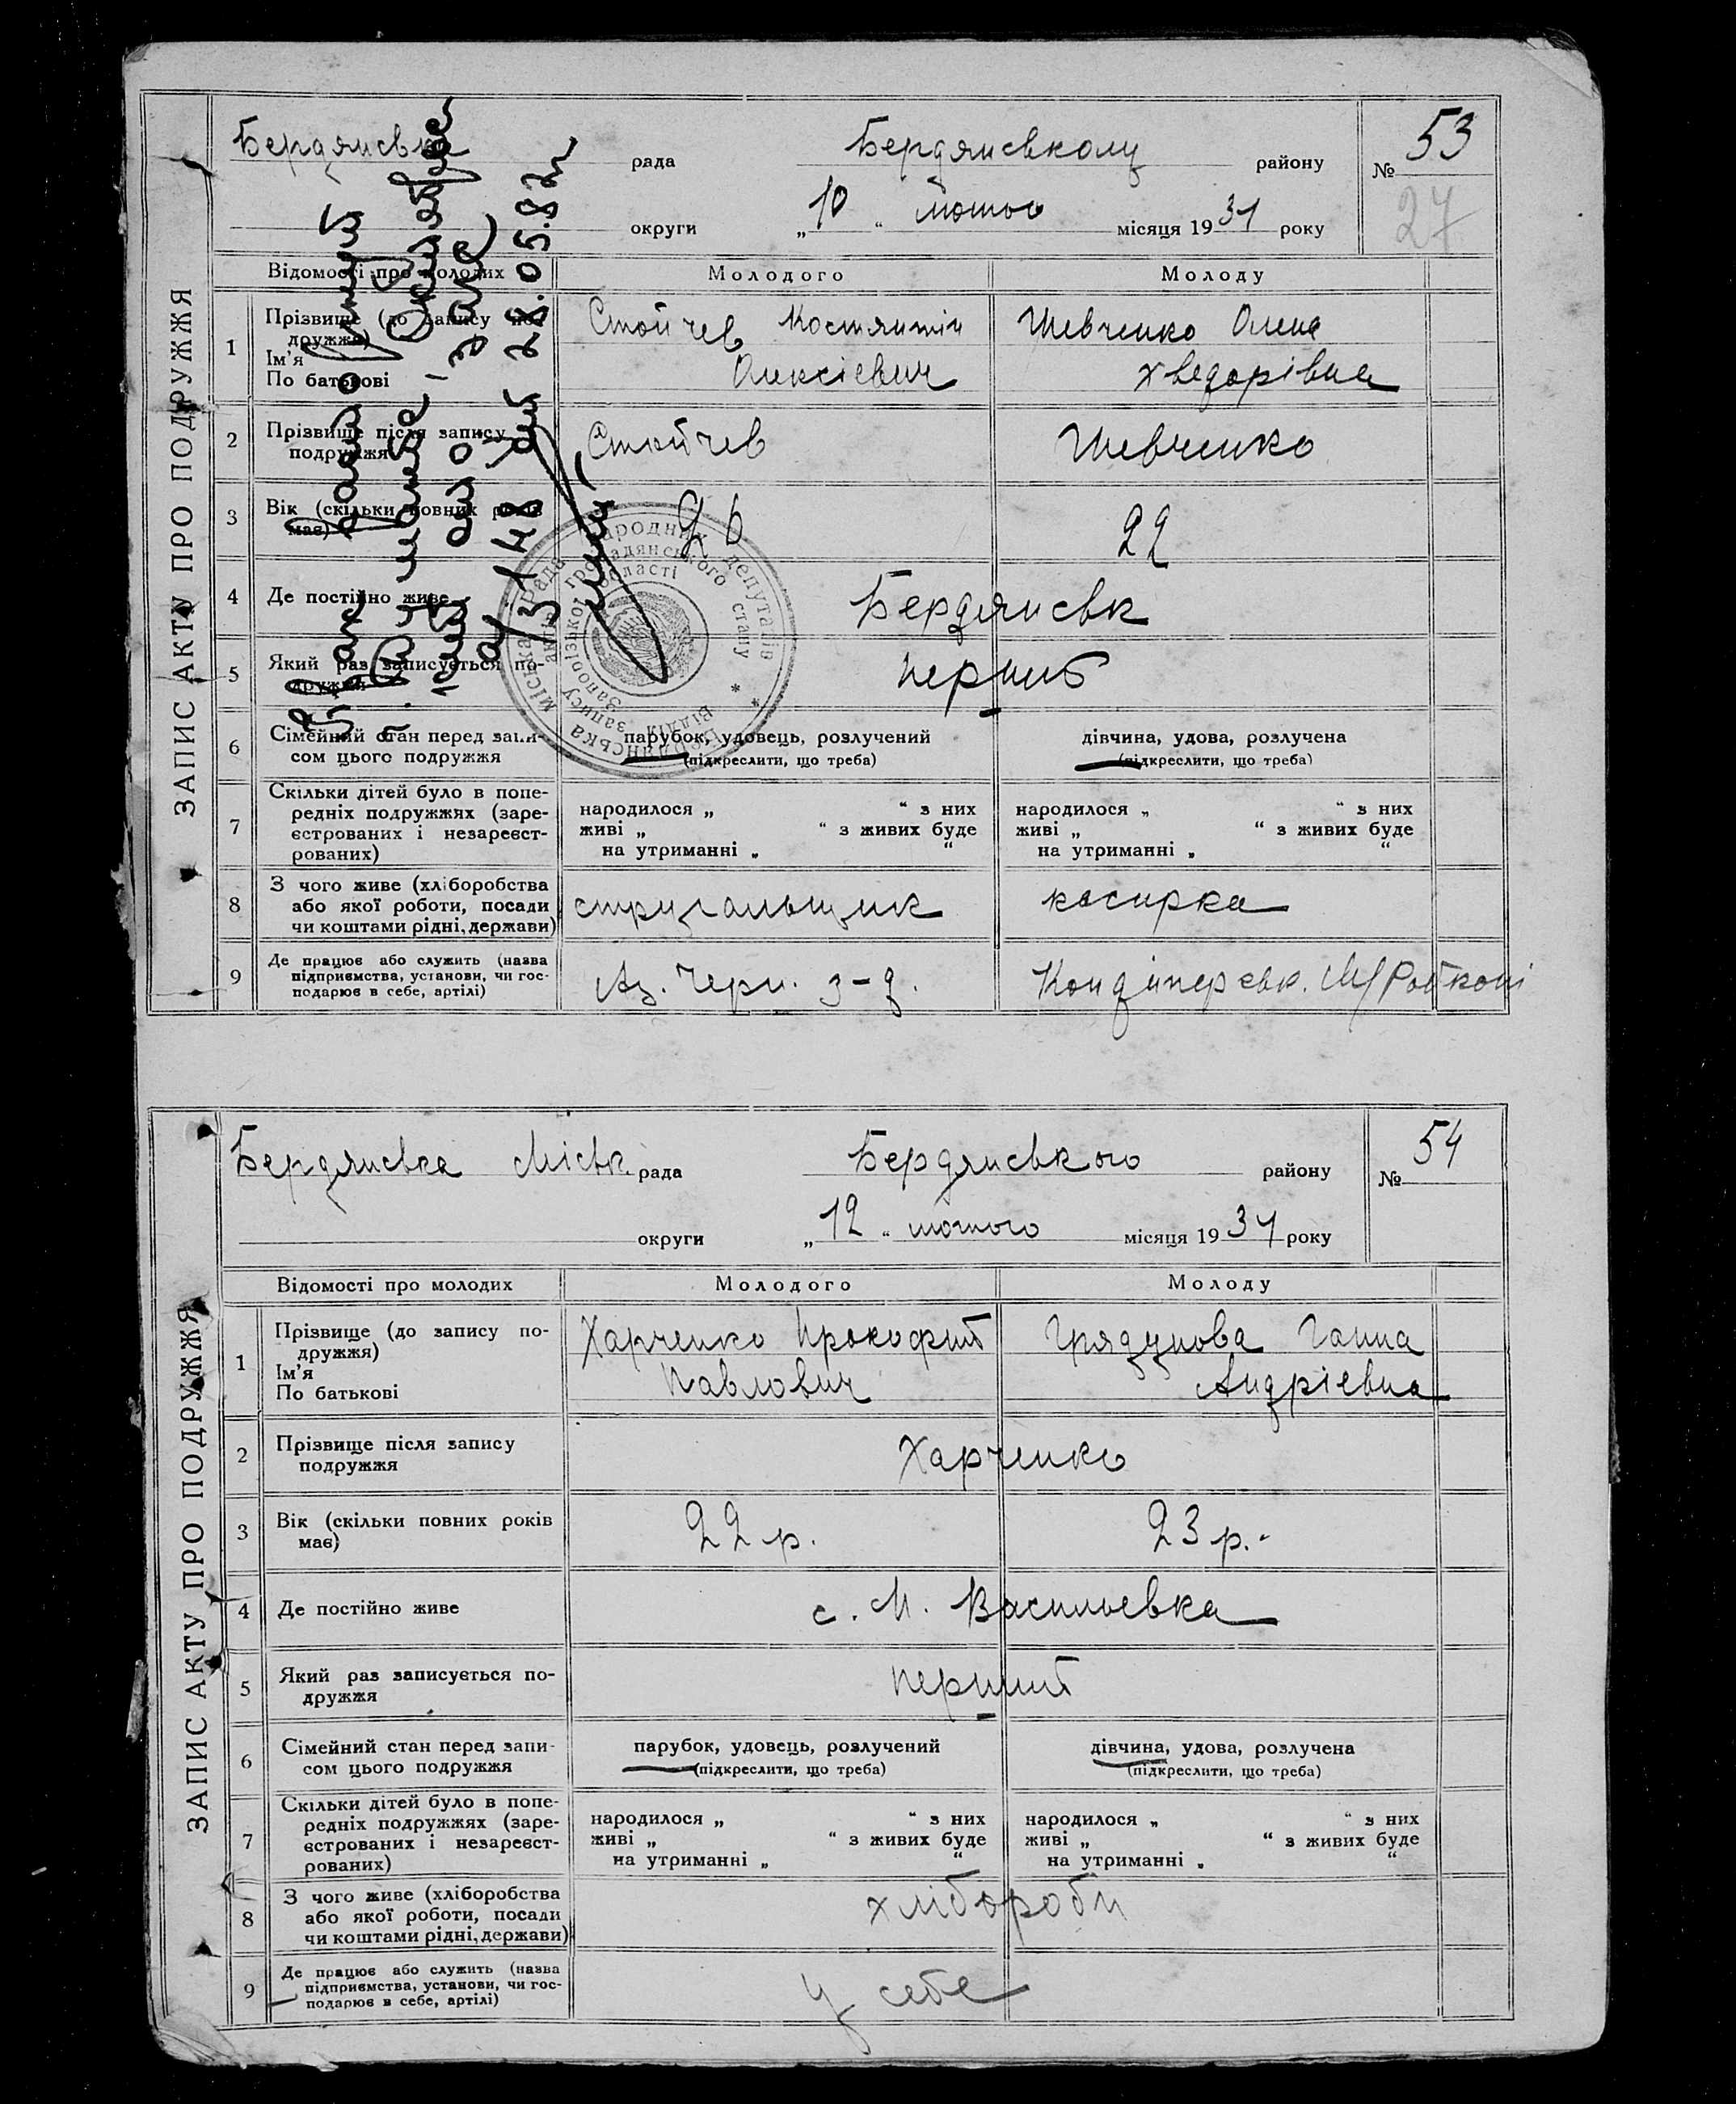 ЗАПИС АКТУ ПРО ПОДРУЖЖЯ
Бердянська рада Бердянському району № 53
27
округи „10“ лютого місяця 1931 року
Відомості про молодих Молодого Молоду
1 Прізвище (до запису по-
дружжя)
Ім'я
По батькові
Стойчев Костянтін
Олексієвич
Шевченко Олена
Хведорівна
2 Прізвище після запису
подружжя
Стойчев Шевченко
3 Вік (скільки повних років
має)
26 22
4 Де постійно живе Бердянськ
5 Який раз записується по-
дружжя
перший
6 Сімейний стан перед запи-
сом цього подружжя
парубок, удовець, розлучений
(підкреслити, що треба)
дівчина, удова, розлучена
(підкреслити, що треба)
7 Скільки дітей було в попе-
редніх подружжях (заре-
єстрованих і незареєст-
рованих)
народилося „ “ з них
живі „ “ з живих буде
на утриманні „ “
народилося „ “ з них
живі „ “ з живих буде
на утриманні „ “
8 З чого живе (хліборобства
або якої роботи, посади
чи коштами рідні, держави)
стругальщик касирка
9 Де працює або служить (назва
підприємства, установи, чи гос-
подарює в себе, артілі)
Аз. Черн. з-д.
28.05.82
Міська Рада народних депутатів
Бердянська
Відділ запису актів громадянського стану
Запорізької області
ЗАПИС АКТУ ПРО ПОДРУЖЖЯ
Бердянська Міськ. рада Бердянського району № 54
округи „12“ лютого місяця 1931 року
Відомості про молодих Молодого Молоду
1 Прізвище (до запису по-
дружжя)
Ім'я
По батькові
Харченко Прокофий
Павлович
Грядунова Ганна
Андрієвна
2 Прізвище після запису
подружжя
Харченко
3 Вік (скільки повних років
має)
22 р. 23 р.
4 Де постійно живе с. М. Васильевка
5 Який раз записується по-
дружжя
перший
6 Сімейний стан перед запи-
сом цього подружжя
парубок, удовець, розлучений
(підкреслити, що треба)
дівчина, удова, розлучена
(підкреслити, що треба)
7 Скільки дітей було в попе-
редніх подружжях (заре-
єстрованих і незареєст-
рованих)
народилося „ “ з них
живі „ “ з живих буде
на утриманні „ “
народилося „ “ з них
живі „ “ з живих буде
на утриманні „ “
8 З чого живе (хліборобства
або якої роботи, посади
чи коштами рідні, держави)
хлібороби
9 Де працює або служить (назва
підприємства, установи, чи гос-
подарює в себе, артілі)
у себе